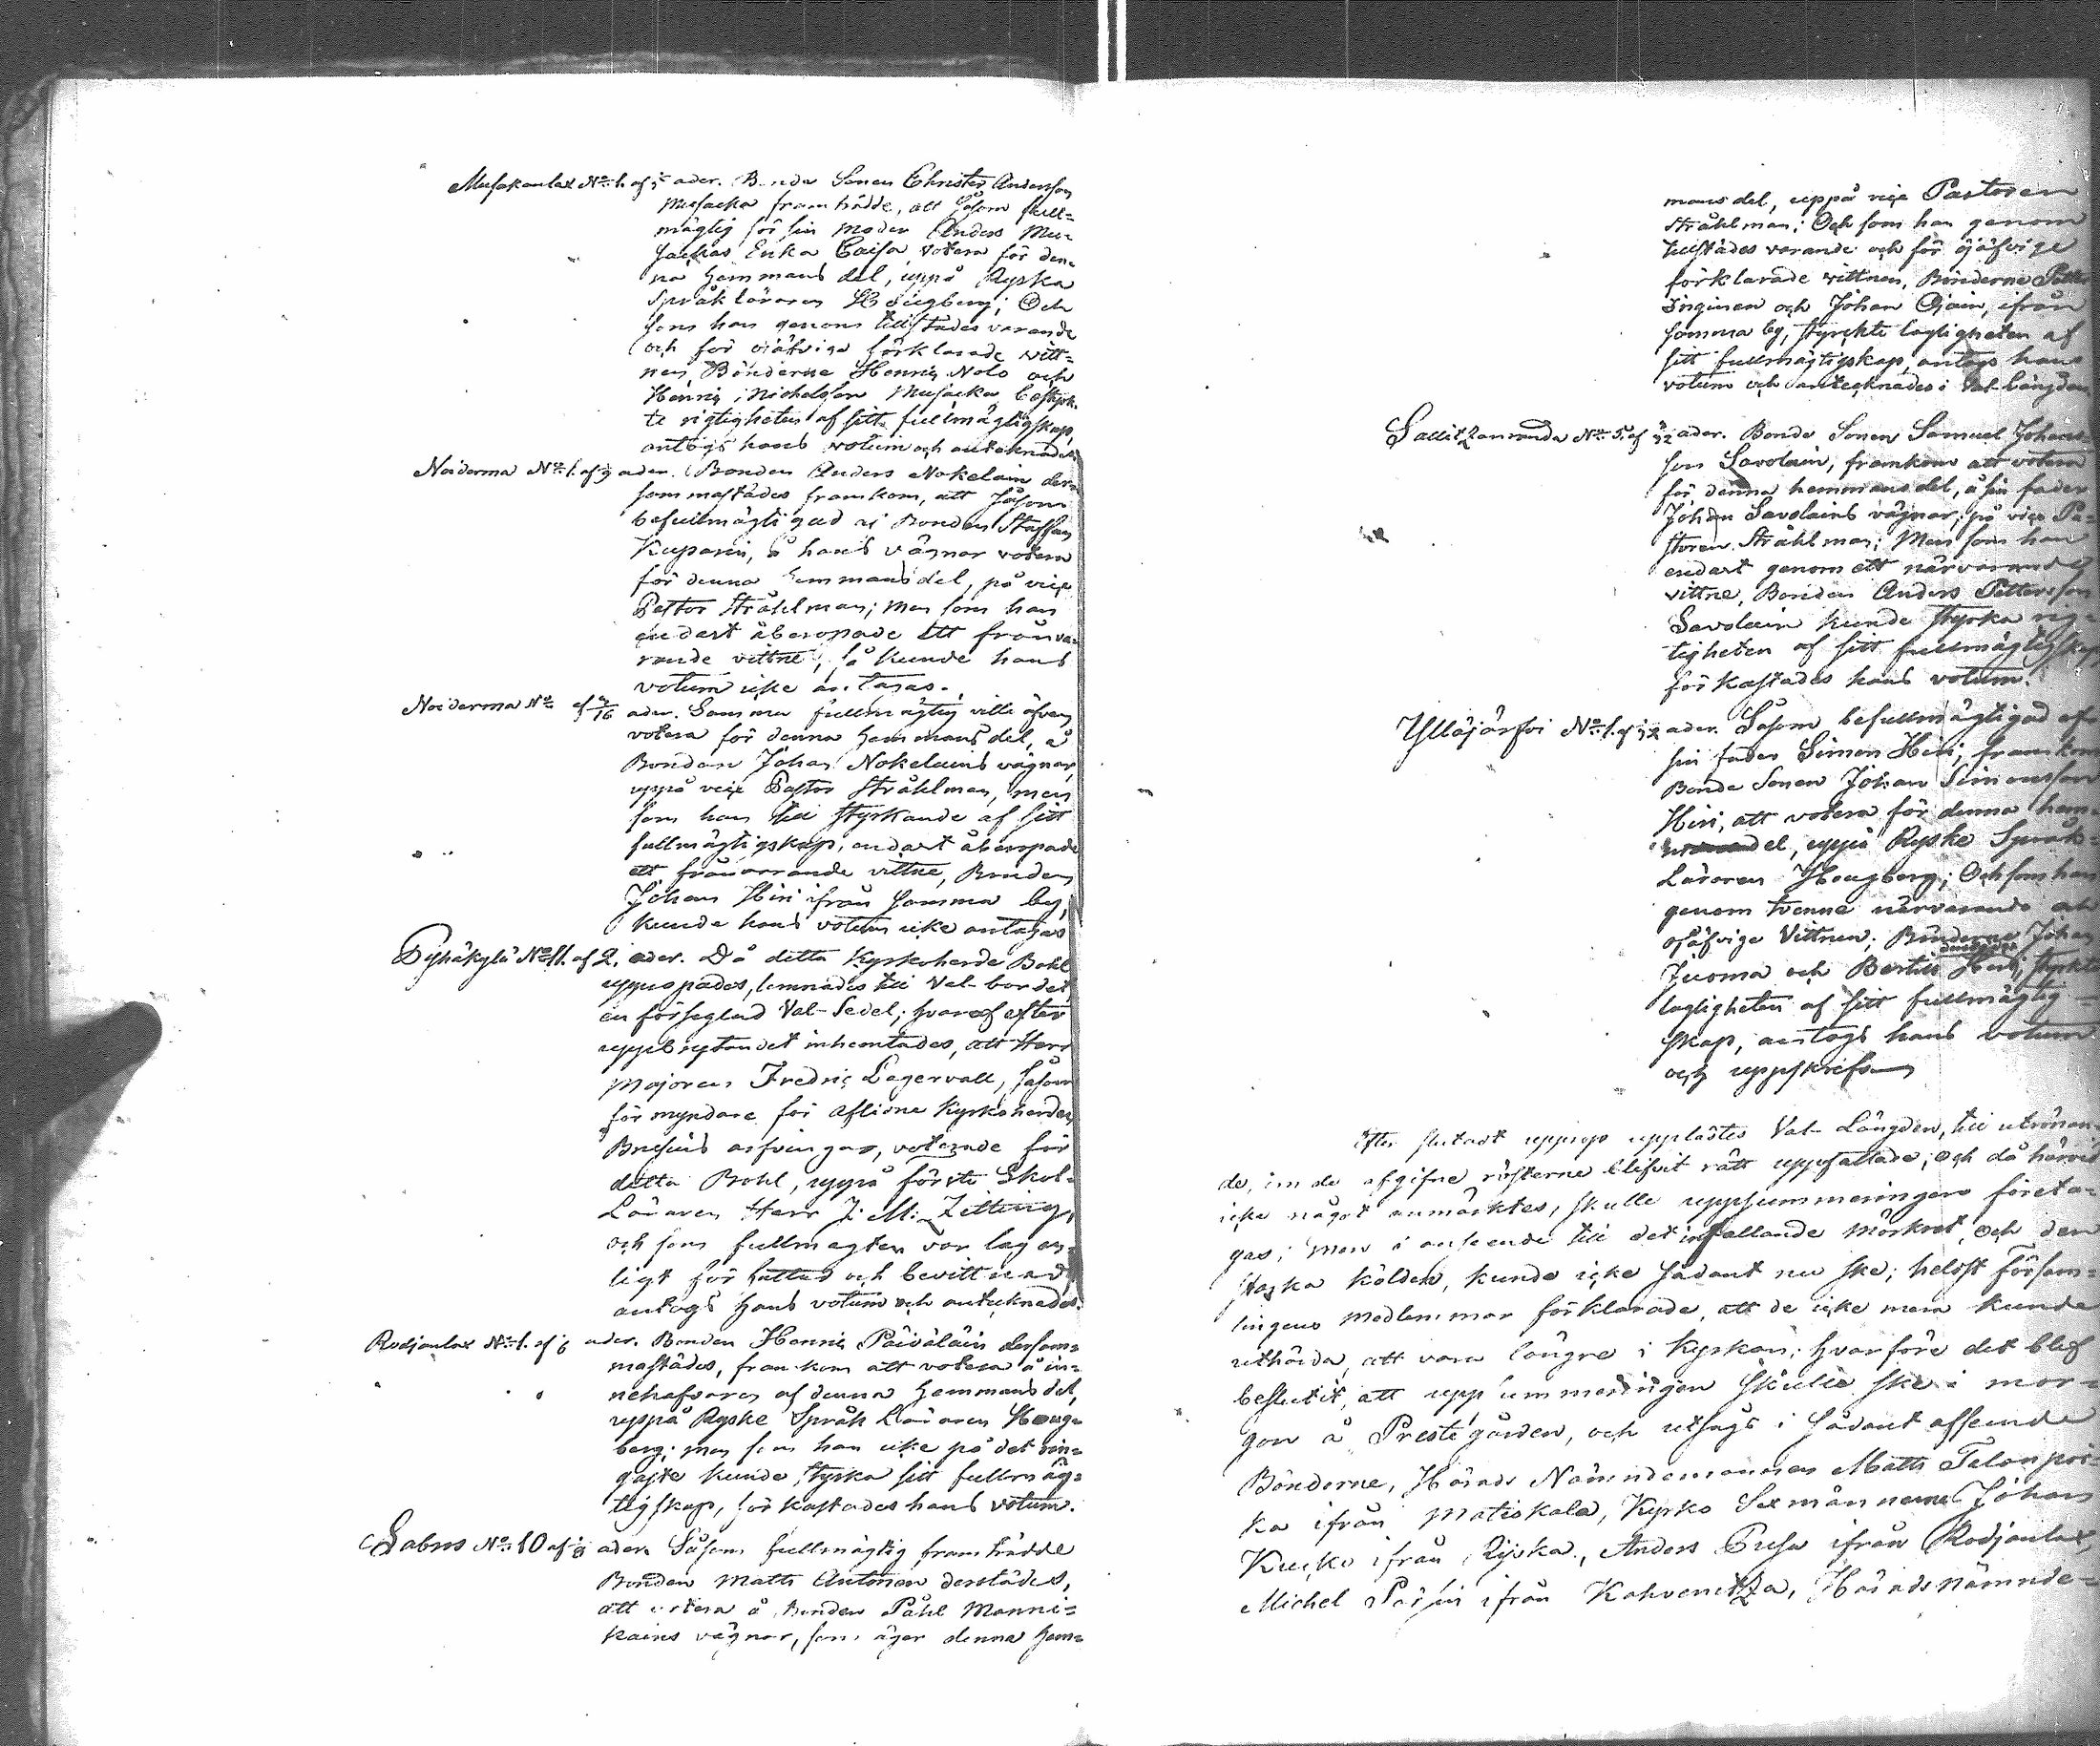 Musakanlax No 1. af ader. Bonde Sonen Christer Andersson
Musacka framträdde, att såsom full-
mägtig för sin moder Anders Mu-
sackas Enka Caisa votera för den-
na hemmans del, uppå Ryska
Språkläraren Hougberg; Och
som han genom tillstädes varande
och för ojäfviga förklarade vitt-
nen Bönderne Henric Nolo och
Henric Michelsson Musacka bestyrk-
te rigtigheten af sitt fullmägtigskap,
antogs hans votum och antecknades.
Noiderma No 1. af ader. Bonden Anders Nokelain der-
sommastädes framkom, att såsom
befullmägtigad af Bonden Staffan
Kuparin, å hans vägnar votera
för denna hemmans del, på vice
Pastor Stråhlman; men som han
endast åberopade ett frånva-
rande vittne, så kunde hans
votum icke antagas.
Noiderma No af /16 ader. Samma fullmägtig ville äfven
votera för denna hemmans del, å
Bonden Johan Nokelains vägnar,
uppå vice Pastor Stråhlman, men
som han till styrkande af sitt
fullmägtigskap, endast åberopade
ett frånvarande vittne, Bonden
Johan Hiri ifrån samma by,
kunde hans votum icke antagas
Pyhäkylä No 11. af 2. ader. Då detta Kyrkoherde Bohl
uppropades, lemnades till Val-bordet
en förseglad Val-Sedel; hvaraf efter
uppbrytandet inhemtades, att Herr
Majoren Fredric Lagervall, såsom
förmyndare för aflidne Kyrkoherden
Brusiis arfvingar, voterade för
detta Bohl, uppå förste Skol-
Läraren Herr J. M. Zitting,
och som fullmagten var lagen-
ligt författad och bevittnad,
antogs hans votum och antecknades.
Rodjanlax No 1. af 6 ader. Bonden Henric Päiväläin dersom-
mastädes, framkom att votera å in-
nehafvaren af denna hemmans del,
uppå Ryske Språk Läraren Houg-
berg; men som han icke på det rin-
gaste kunde styrka sitt fullmäg-
tigskap, förkastades hans votum.
No 10 af ader. Såsom fullmägtig framträdde
Bonden Matts Antonen derstädes,
att votera å Bonden Påhl Manni-
kains vägnar, som äger denna hem-
mans del, uppå vice Pastoren
Stråhlman; Och som han genom
tillstädes varande och för ojäfvige
förklarade vittnen, Bönderne Petter
Inginen och Johan Ojain, ifrån
samma by, styrkte lagligheten af
sitt fullmägtigskap, antogs hans
votum och antecknades i Val-Längden
Sallitzanranda No 5. af /32 ader. Bonde Sonen Samuel Johans-
son Savolain, framkom att votera
för denna hemmans del, å sin fader
Johan Savolains vägnar, på vice Pa-
storen Stråhlman; Men som han
endast genom ett närvarande
vittne, Bonden Anders Pettersson
Savolain kunde styrka rig-
tigheten af sitt fullmägtigskap
förkastades hans votum.
Ylläjärfvi No 1. af ader. Såsom befullmägtigad af
sin fader Simon Hiri, framkom
Bonde Sonen Johan Simonsson
Hiri, att votera för denna hem-
mans del, uppå Ryske Språk-
Läraren Hougberg; Och som han
genom tvenne närvarande och
ojäfvige Vittnen; Bönderne Johan
Juoma och Bertill Hiri, styrkte
lagligheten af sitt fullmägtig-
skap, antogs hans votum
och uppskrifven
Efter slutadt upprop upplästes Val-Längden, till utrönan-
de, im de afgifne rösterne blifvit rätt uppfattade; och då härvid
icke något anmärktes, skulle uppsummeringen företa-
gas; Men i anseende till det infallande mörkret, och den
starka kölden, kunde icke sådant nu ske; helst försam-
lingens medlemmar förklarade, att de icke mera kunde
uthärda, att vara längre i Kyrkan; hvarföre det blef
beslutit, att uppsummeringen skulle ske i mor-
gon å Prestegården, och utsågs i sådant afseende
Bönderne, Härads Nämndemannen Matts Telanpoi-
ka ifrån Matiskala, Kyrko Sexmännerne Johan
Kucko ifrån Rijska, Anders Pusa ifrån Rodjanlax,
Michel Pärsin ifrån Kahvenitza, Häradsnämnde-